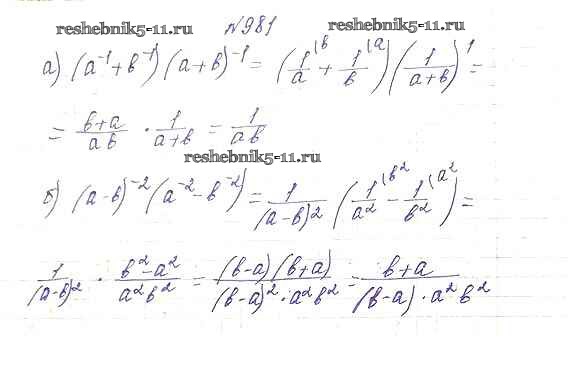 reshebnik5-11.ru
№981
reshebnik5-11.ru
а) (a⁻¹+b⁻¹)(a+b)⁻¹ = (1/a^(b + 1/b^(a)(1/(a+b))¹ =
= (b+a)/(ab) · 1/(a+b) = 1/(ab)
reshebnik5-11.ru
б) (a-b)⁻²(a⁻²-b⁻²) = 1/(a-b)² (1/a²^(b² - 1/b²^(a²) =
1/(a-b)² · (b²-a²)/(a²b²) = (b-a)(b+a)/((b-a)²·a²b²) = (b+a)/((b-a)·a²b²)